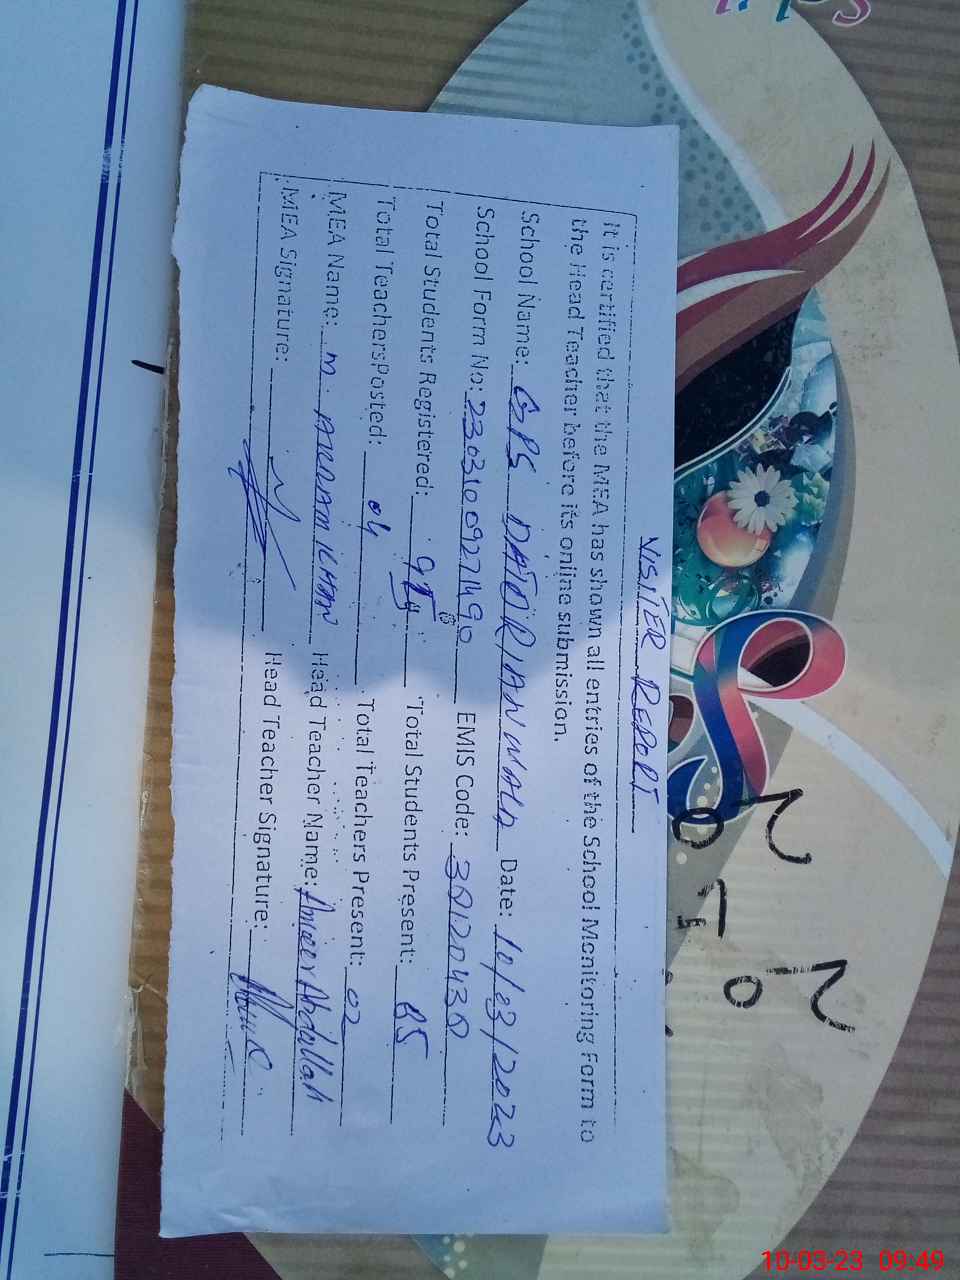 VISITER REPORT
It is certified that the MEA has shown all entries of the School Monitoring Form to
the Head Teacher before its online submission.
School Name: GPS DATORIANWALA Date: 10/03/2023
School Form No: 23031009271490 EMIS Code:
Total Students Registered: Total Students Present: 85
Total Teachers Posted: 04 Total Teachers Present: 02
MEA Name: M. KHAN Head Teacher Name: Ameer Abdullah
MEA Signature: Head Teacher Signature:
10-03-23 09:49